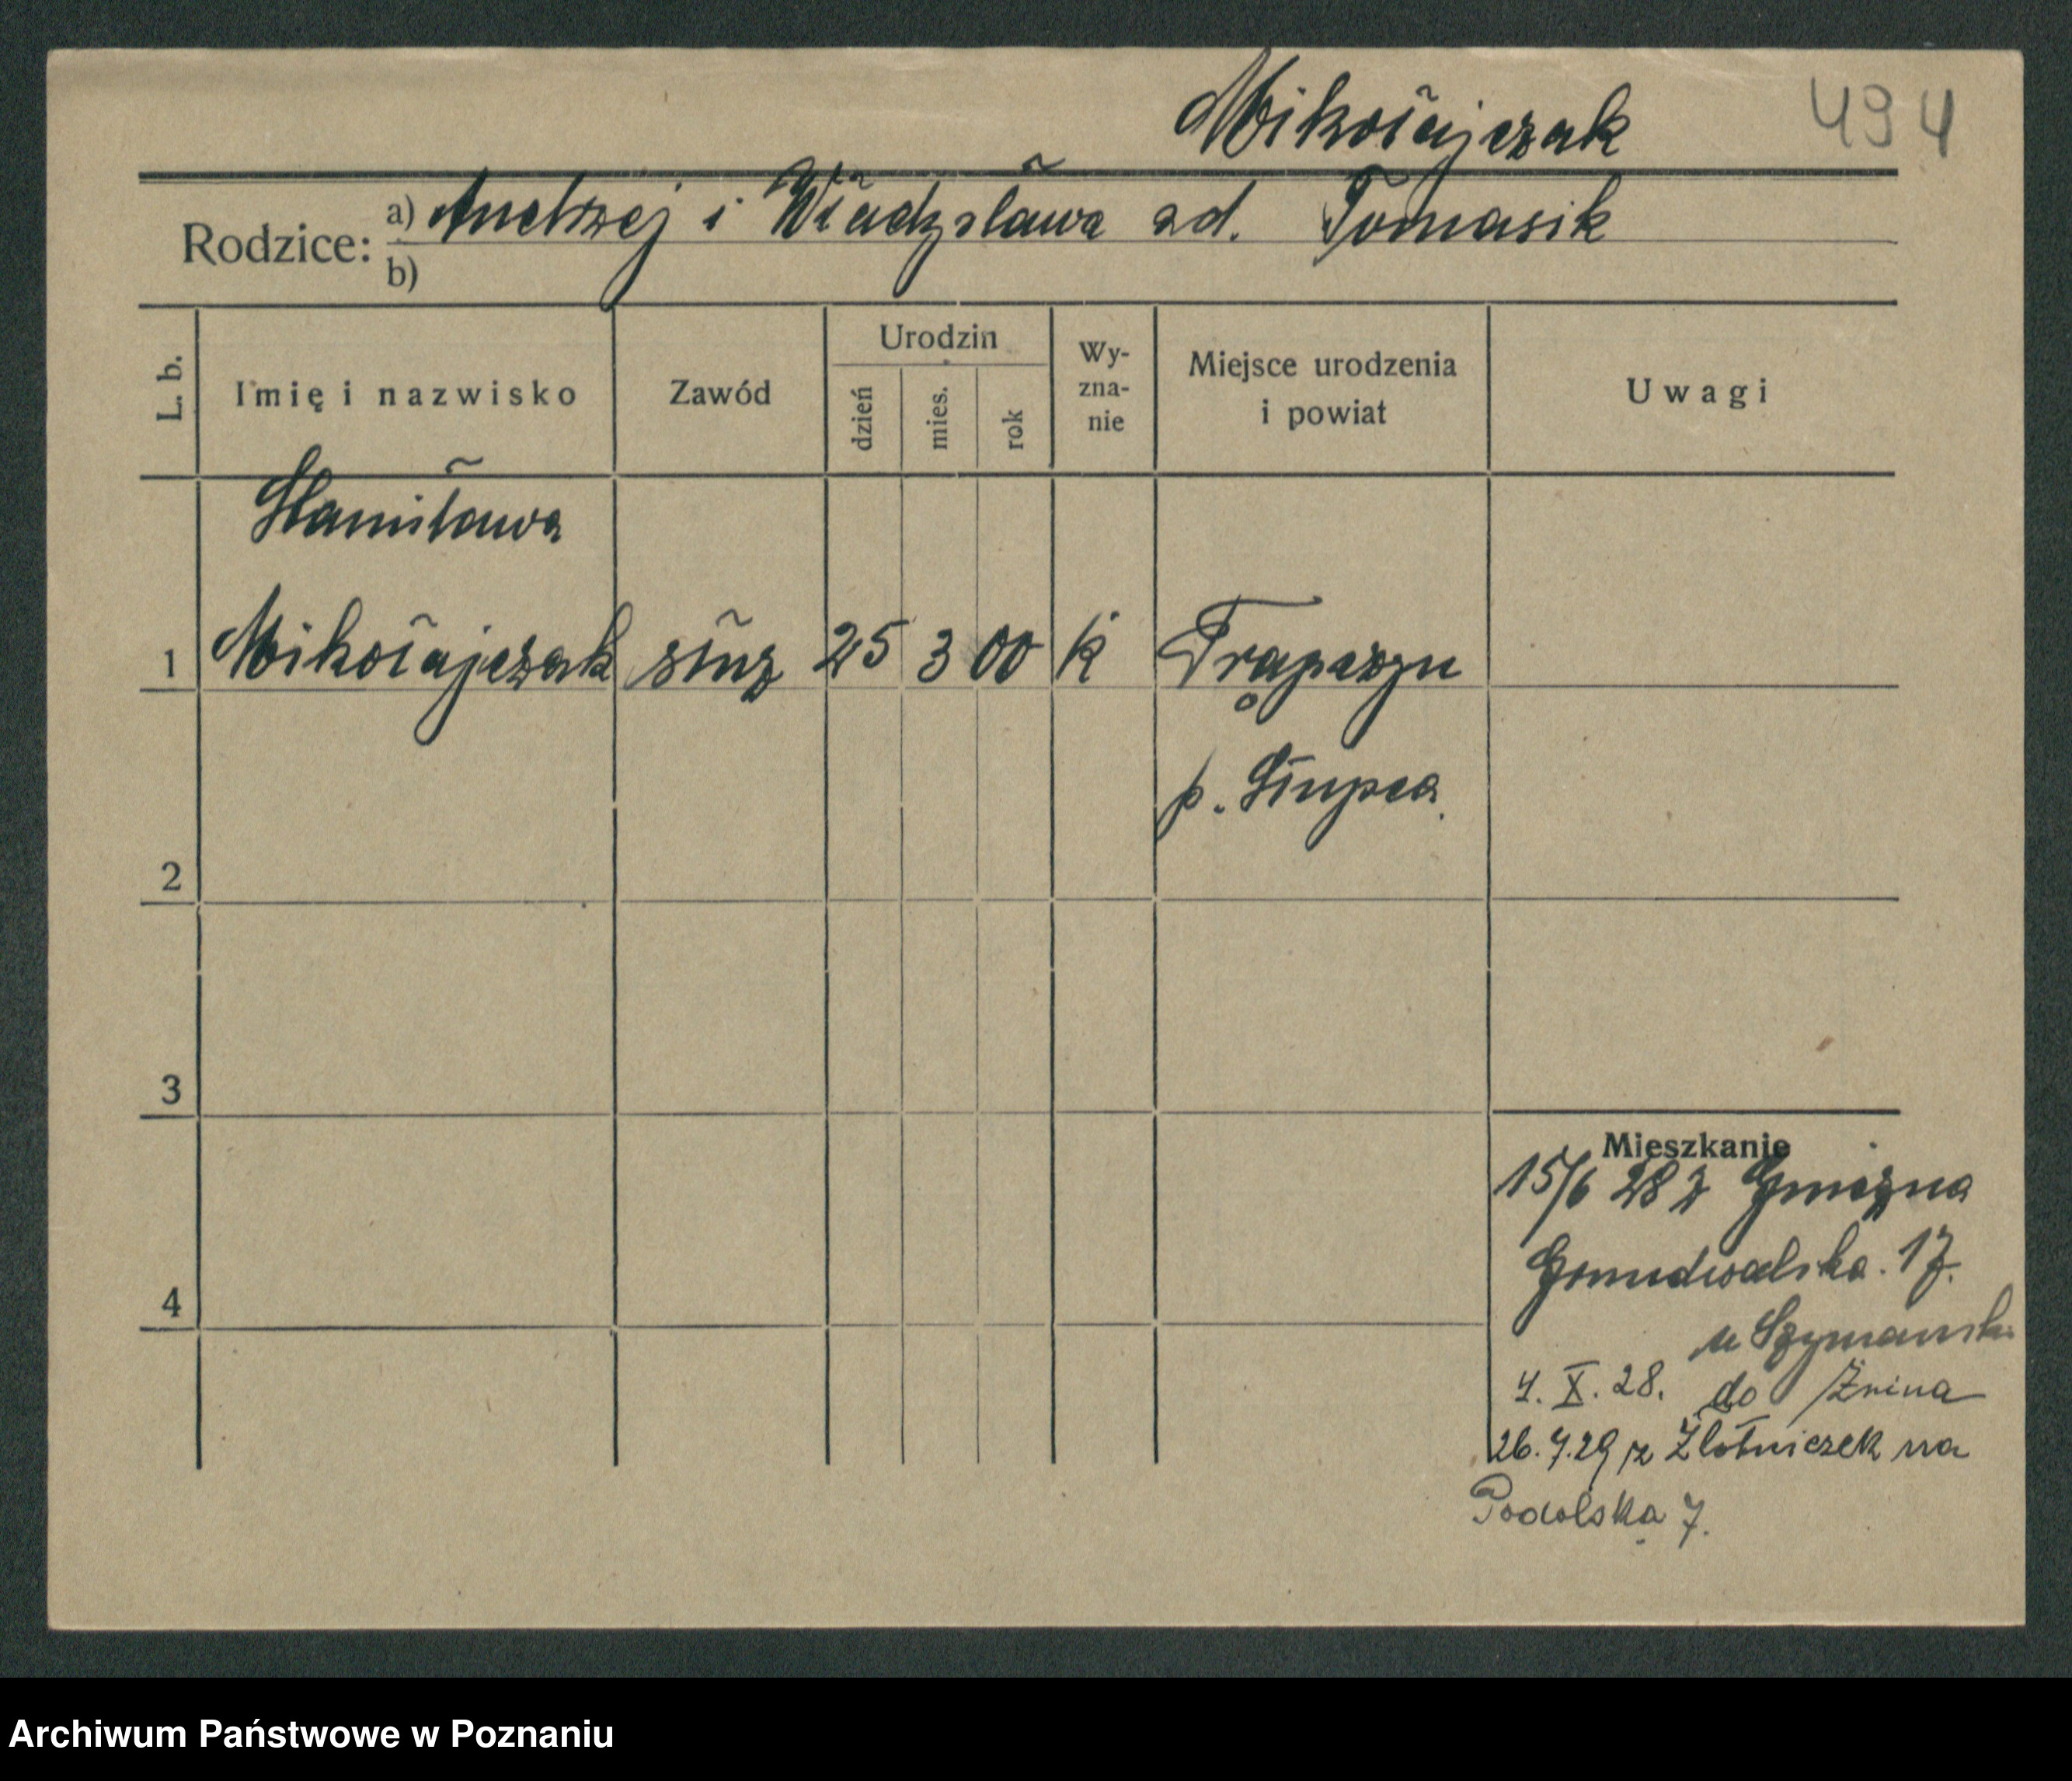 Mikołajczak
494
Rodzice: a) Andrzej i Władysława zd. Tomasik
b)
L. b.
Imię i nazwisko
Zawód
Urodzin
dzień
mies.
rok
Wy-
zna-
nie
Miejsce urodzenia
i powiat
Uwagi
Stanisława
1 Mikołajczak służ 25 3 00 K Trąpczyn
p. Słupca.
2
3
4
Mieszkanie
15/6 28 z Gniezna
Grundwalska. 17.
u Szymansk.
4. X. 28. do Żnina
26.7.29 z Złotniczek na
Podolską 7.
Archiwum Państwowe w Poznaniu